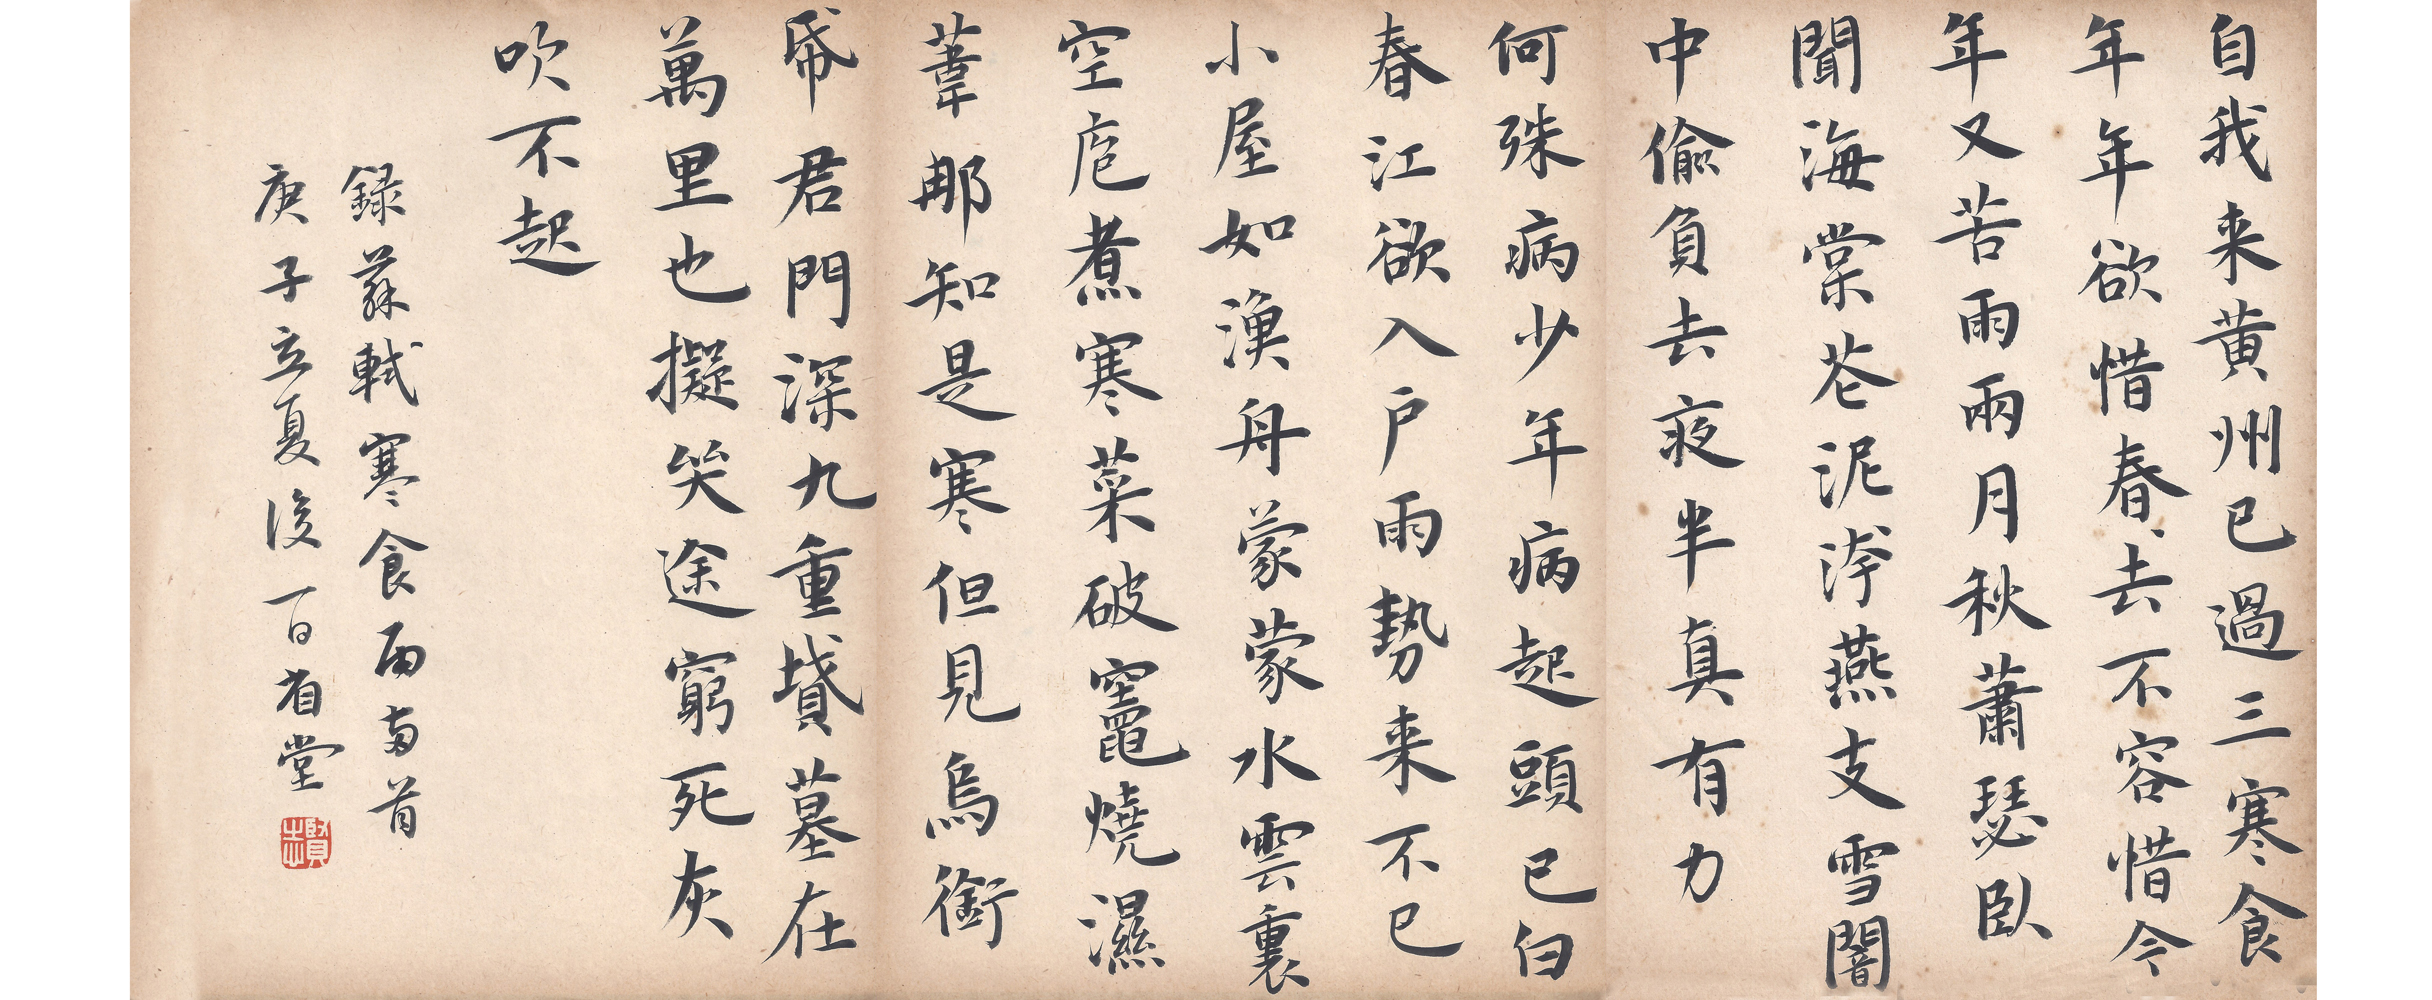 自我来黄州已過三寒食
年年欲惜春去不容惜今
年又苦雨兩月秋蕭瑟臥
聞海棠花泥汙燕支雪闇
中偷負去夜半真有力
何殊病少年病起頭已白
春江欲入户雨勢来不已
小屋如漁舟蒙蒙水雲裏
空庖煮寒菜破竈燒濕
葦那知是寒但見烏銜
帋君門深九重墳墓在
萬里也擬哭途窮死灰
吹不起
錄蘇軾寒食雨两首
庚子立夏後一日省堂